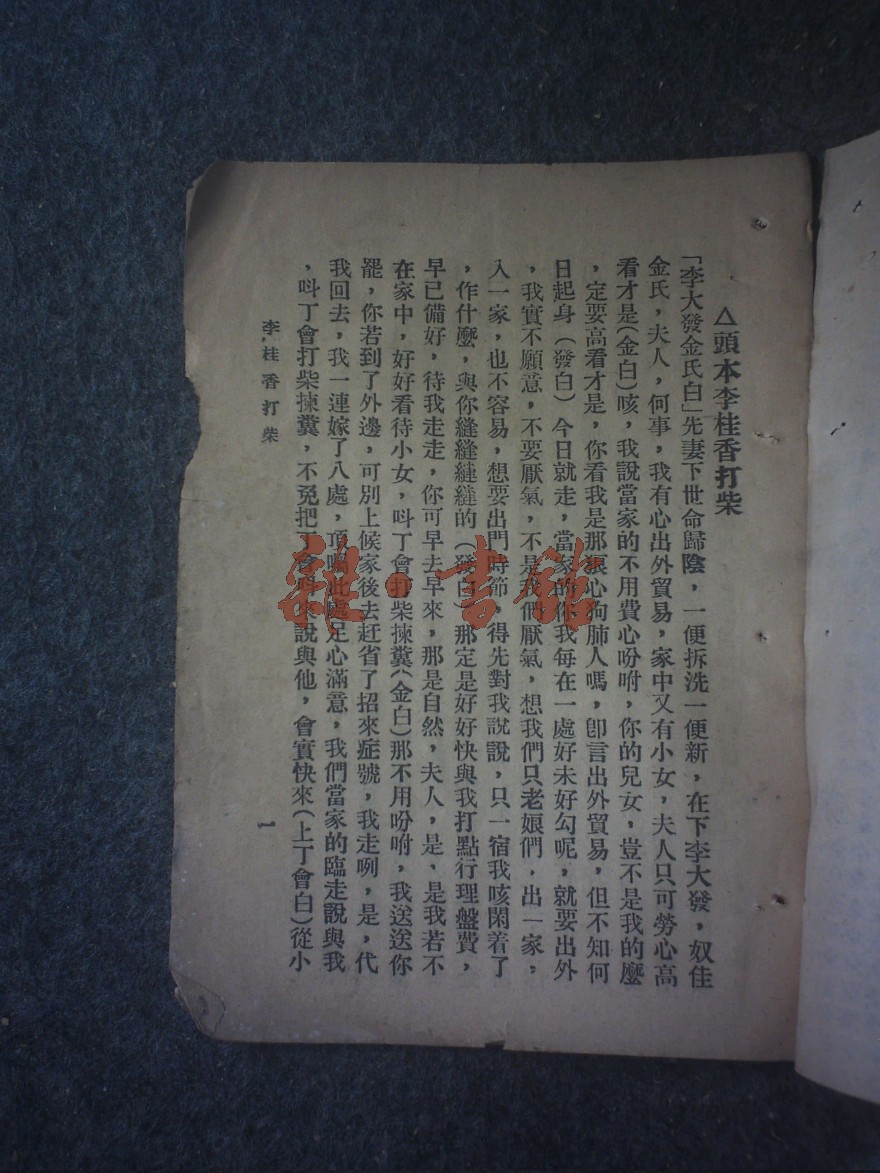 △頭本李桂香打柴
「李大發金氏白」先妻下世命歸陰，一便拆洗一便新，在下李大發，奴佳
金氏，夫人，何事，我有心出外貿易，家中又有小女，夫人只可勞心高
看才是(金白)咳，我說當家的不用費心吩咐，你的兒女，豈不是我的麼
，定要高看才是，你看我是那狼心狗肺人嗎，卽言出外貿易，但不知何
日起身(發白)今日就走，當家的你我每在一處好未好勾呢，就要出外
，我實不願意，不要厭氣，不是我們厭氣，想我們只老娘們，出一家，
入一家，也不容易，想要出門時節，得先對我說說，只一宿我咳閑着了
，作什麼，與你縫縫縺縺的(發白)那定是好好快與我打點行理盤費，
早已備好，待我走走，你可早去早來，那是自然，夫人，是，是我若不
在家中，好好看待小女，呌丁會打柴揀糞(金白)那不用吩咐，我送送你
罷，你若到了外邊，可別上候家後去赶省了招來症號，我走咧，是，代
我回去，我一連嫁了八處，頂此處足心滿意，我們當家的臨走說與我
，呌丁會打柴揀糞，不免把丁會來說與他，會實快來(上丁會白)從小
李桂香打柴
1
雜·書館